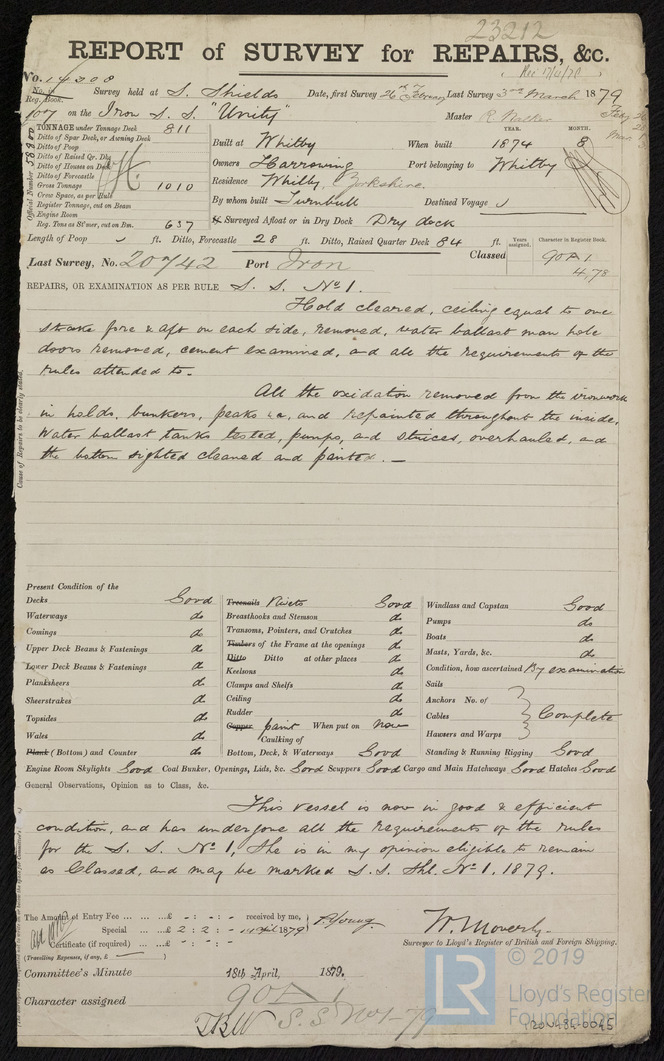 23212
REPORT of SURVEY for REPAIRS, &c.
No. 14308
Rec 17/4/79
No. in Reg. Book. Survey held at S. Shields Date, first Survey 26th February Last Survey 3rd March 1879
107 on the Iron S. S. "Unity" Master R. Walker
TONNAGE under Tonnage Deck 811
Ditto of Spar Deck, or Awning Deck
Ditto of Poop
Ditto of Raised Qr. Dk.
Ditto of Houses on Deck
Ditto of Forecastle
Gross Tonnage 1010
Crew Space, as per Rule
Register Tonnage, cut on Beam
Engine Room
Reg. Tons as St'mer, cut on Bm. 637
Official Number
YEAR. MONTH.
Built at Whitby When built 1874 8
Owners Harrowing Port belonging to Whitby
Residence Whitby, Yorkshire
By whom built Turnbull Destined Voyage
Surveyed Afloat or in Dry Dock Dry dock
Length of Poop ft. Ditto, Forecastle 28 ft. Ditto, Raised Quarter Deck 84 ft. Years assigned. Character in Register Book.
Last Survey, No. 20742 Port Iron Classed 90 A 1
4,78
REPAIRS, OR EXAMINATION AS PER RULE S. S. No 1.
Hold cleared, ceiling equal to one
strake fore & aft on each side, removed, water ballast man hole
doors removed, cement examined, and all the requirements of the
rules attended to.
All the oxidation removed from the ironwork
in holds, bunkers, peaks &c, and repainted throughout the inside,
Water ballast tanks tested, pumps, and sluices, overhauled, and
the bottom sighted cleaned and painted. —
Cause of Repairs to be clearly stated.
Present Condition of the
Decks Good
Waterways do
Comings do
Upper Deck Beams & Fastenings do
Lower Deck Beams & Fastenings do
Planksheers do
Sheerstrakes do
Topsides do
Wales do
Plank (Bottom) and Counter do
Treenails Rivets Good
Breasthooks and Stemson do
Transoms, Pointers, and Crutches do
Timbers of the Frame at the openings do
Ditto Ditto at other places do
Keelsons do
Clamps and Shelfs do
Ceiling do
Rudder do
Copper paint When put on Now
Caulking of
Bottom, Deck, & Waterways Good
Windlass and Capstan Good
Pumps do
Boats do
Masts, Yards, &c. do
Condition, how ascertained By examination
Sails
Anchors No. of
Cables Complete
Hawsers and Warps
Standing & Running Rigging Good
Engine Room Skylights Good Coal Bunker, Openings, Lids, &c. Good Scuppers Good Cargo and Main Hatchways Good Hatches Good
General Observations, Opinion as to Class, &c.
This vessel is now in good & efficient
condition, and has undergone all the requirements of the rules
for the S. S. No 1, She is in my opinion eligible to remain
as Classed, and may be marked S. S. Shl. No 1, 1879.
The Amount of Entry Fee ... £ - : - : - received by me,
Special ... £ 2 : 2 : - 1879 P. Young
Certificate (if required) ... - : - : -
(Travelling Expenses, if any, £ )
W. Moverly.
Surveyor to Lloyd's Register of British and Foreign Shipping.
Committee's Minute 18th April, 1879.
Character assigned 90 A 1
S. S No 1-79
LR
© 2019
Lloyd's Register
Foundation